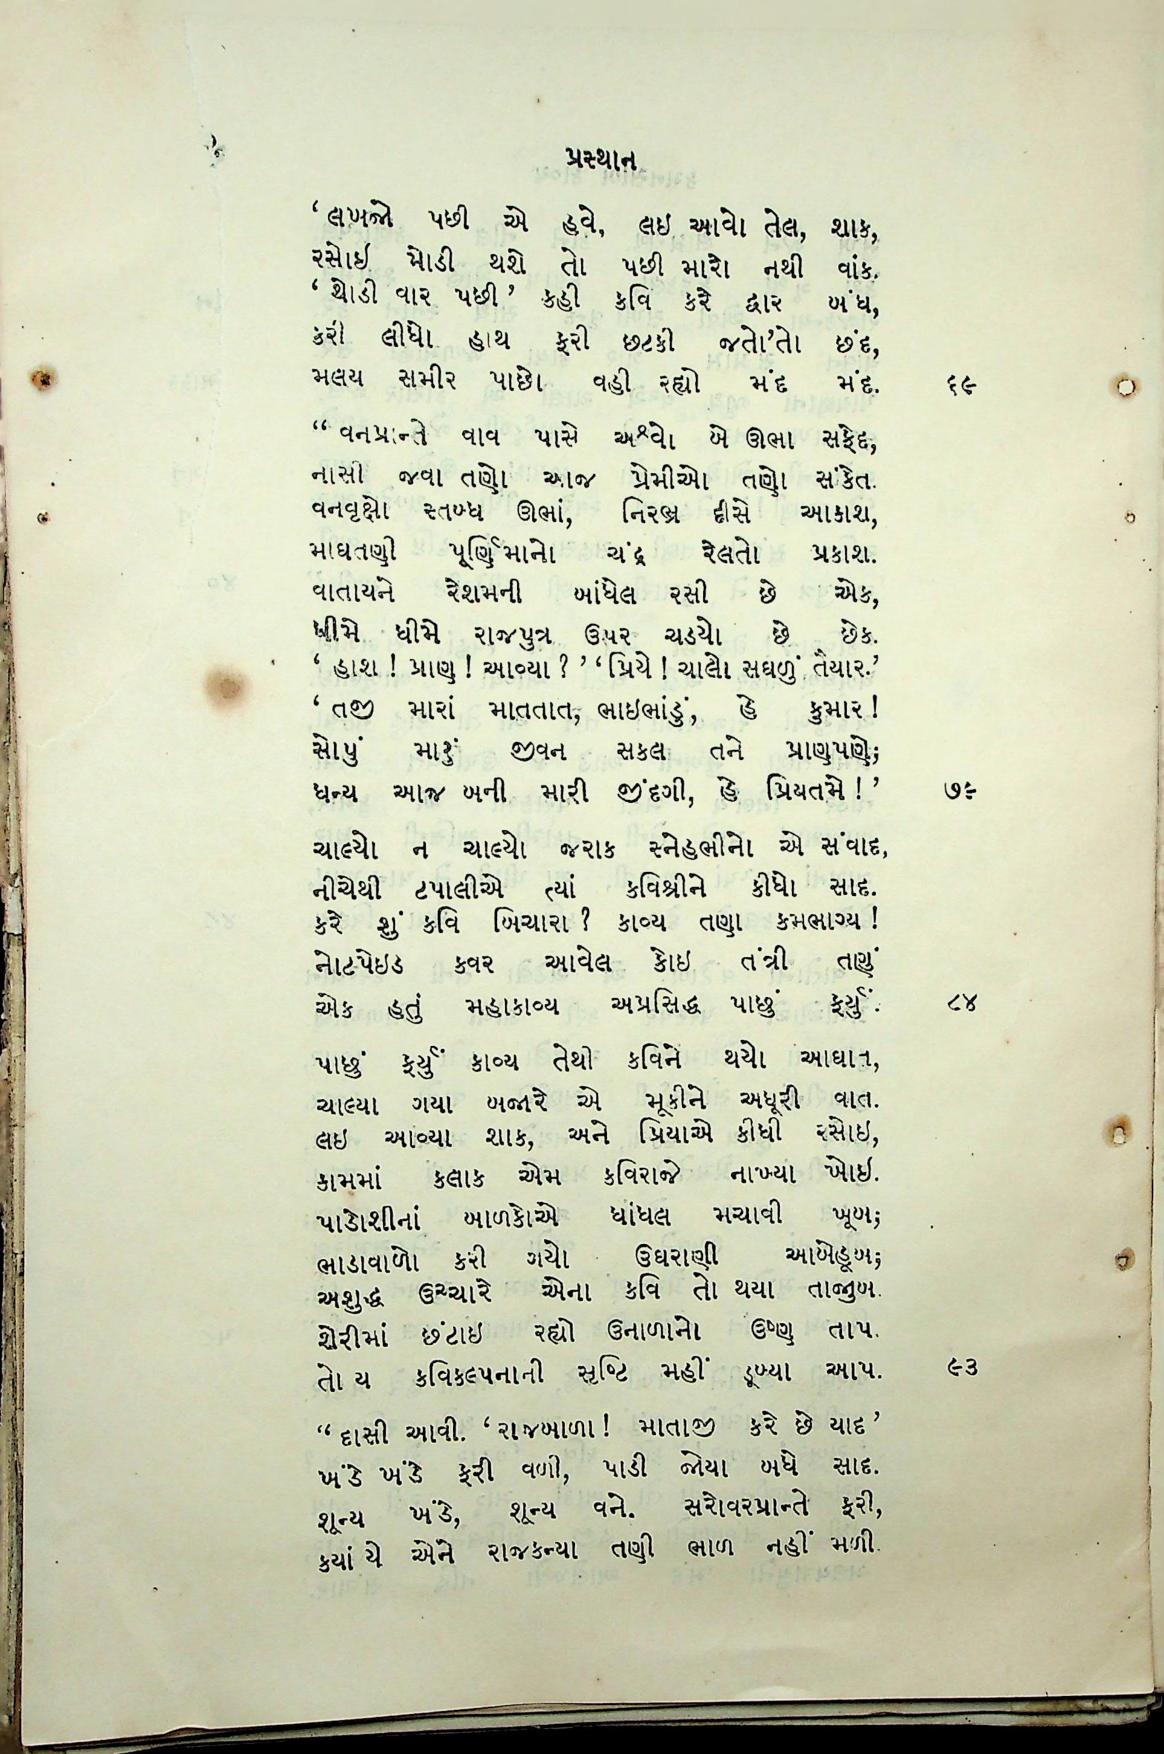 પ્રસ્થાન
‘લખજો પછી એ હવે, લઇ આવો તેલ, શાક,
રસોઇ મોડી થશે તો પછી મારો નથી વાંક.
‘થોડી વાર પછી’ કહી કવિ કરે દ્વાર બંધ,
કરી લીધો હાથ ફરી છટકી જતો’તો છંદ,
મલય સમીર પાછો વહી રહ્યો મંદ મંદ. ૬૯
“વનપ્રાન્તે વાવ પાસે અશ્વો બે ઊભા સફેદ,
નાસી જવા તણો આજ પ્રેમીઓ તણો સંકેત.
વનવૃક્ષો સ્તબ્ધ ઊભાં, નિરભ્ર દીસે આકાશ,
માઘતણી પૂર્ણિમાનો ચંદ્ર રેલતો પ્રકાશ.
વાતાયને રેશમની બાંધેલ રસી છે એક,
ધીમે ધીમે રાજપુત્ર ઉપર ચડયો છે છેક.
‘હાશ! પ્રાણ! આવ્યા?’ ‘પ્રિયે! ચાલો સઘળું તૈયાર.’
‘તજી મારાં માતતાત, ભાઇભાંડું, હે કુમાર!
સોપું મારું જીવન સકલ તને પ્રાણપણે;
ધન્ય આજ બની મારી જીંદગી, હે પ્રિયતમે!’ ૭૯
ચાલ્યો ન ચાલ્યો જરાક સ્નેહભીનો એ સંવાદ,
નીચેથી ટપાલીએ ત્યાં કવિશ્રીને કીધો સાદ.
કરે શું કવિ બિચારા? કાવ્ય તણા કમભાગ્ય!
નોટપેઇડ કવર આવેલ કોઇ તંત્રી તણું
એક હતું મહાકાવ્ય અપ્રસિદ્ધ પાછું ફર્યું. ૮૪
પાછું ફર્યું કાવ્ય તેથી કવિને થયો આઘાત,
ચાલ્યા ગયા બજારે એ મૂકીને અધૂરી વાત.
લઇ આવ્યા શાક, અને પ્રિયાએ કીધી રસોઇ,
કામમાં કલાક એમ કવિરાજે નાખ્યા ખોઇ.
પાડોશીનાં બાળકોએ ધાંધલ મચાવી ખૂબ;
ભાડાવાળો કરી ગયો ઉઘરાણી આબેહૂબ;
અશુદ્ધ ઉચ્ચારે એના કવિ તો થયા તાજુબ.
શેરીમાં છંટાઇ રહ્યો ઉનાળાનો ઉષ્ણ તાપ.
તો ય કવિકલ્પનાની સૃષ્ટિ મહીં ડૂબ્યા આપ. ૯૩
“દાસી આવી. ‘રાજબાળા! માતાજી કરે છે યાદ’
ખંડે ખંડે ફરી વળી, પાડી જોયા બધે સાદ.
શૂન્ય ખંડે, શૂન્ય વને. સરોવરપ્રાન્તે ફરી,
કયાં યે એને રાજકન્યા તણી ભાળ નહીં મળી.